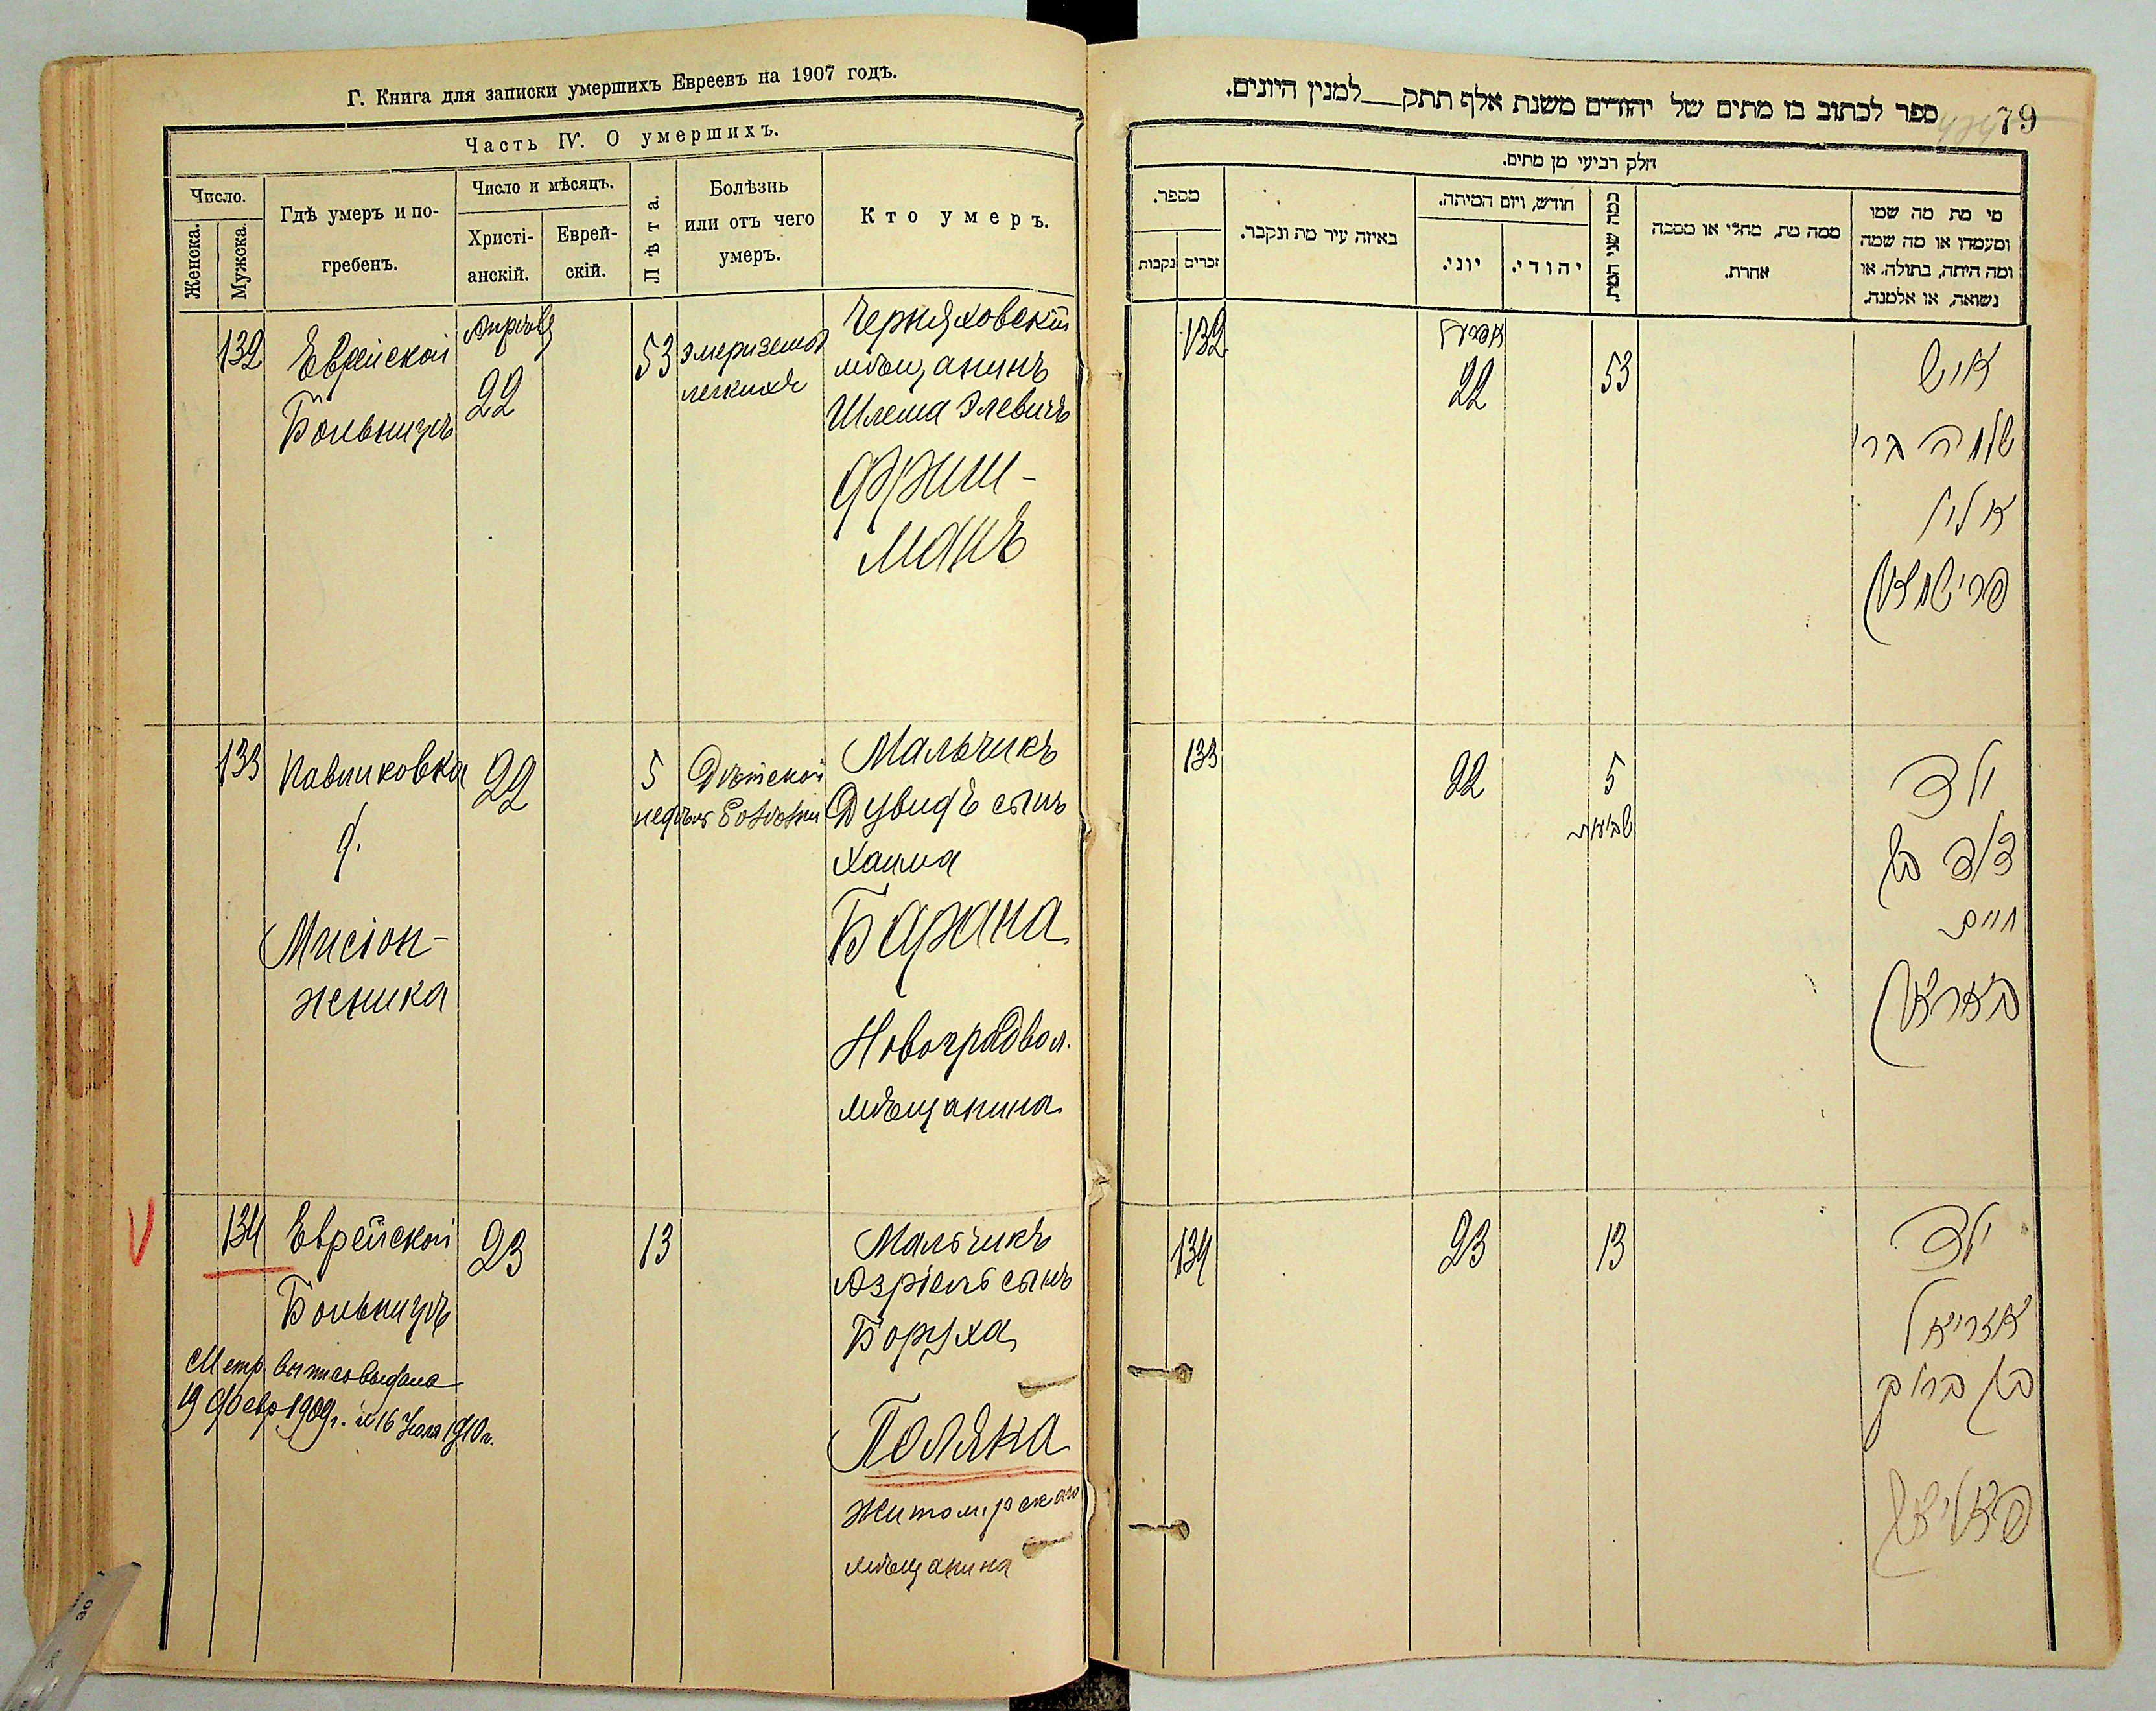 Г. Книга для записки умершихъ Евреевъ на 1907 годъ.
Часть IV. О умершихъ.
Число.
Женска.
Мужска.
Гдѣ умеръ и по-
гребенъ.
Число и мѣсяцъ.
Христі-
анскій.
Еврей-
скій.
Лѣта.
Болѣзнь
или отъ чего
умеръ.
Кто умеръ.
132
Еврейской
Больницѣ
Апрѣля
22
53
легкихъ
Черняховскій
мѣщанинъ
Шлема Элевичъ
Фриш-
манъ
133
Павликовка
д.
Мисіон-
жника
22
5
недѣль
Дѣтской
болѣзни
Мальчикъ
Дувидъ сынъ
Хаима
Барана
Новоградвол.
мѣщанина
134
Еврейской
Больницѣ
23
13
Мальчикъ
Азріель сынъ
Боруха
Поляка
Житомірскаго
мѣщанина
Метр. выпись выдана
19 Февр 1909г. и 16 Іюля 1910г.
79
ספר לכתוב בו מתים של יהודים משנת אלף תתק___למנין היונים.
חלק רביעי מן מתים.
מספר.
נקבות
זכרים
באיזה עיר מת ונקבר.
חודש, ויום המיתה.
יוני.
יהודי.
כמה שני המת.
ממה מת, מחלי או מסבה
אחרת.
מי מת מה שמו
ומעמדו או מה שמה
ומה היתה, בתולה, או
נשואה, או אלמנה.
132
אפריל
22
53
איש
שלמה בר'
אלי
פרישמאן
133
22
5
שבועות
ילד
דוד בן
חיים
באראן
134
23
13
ילד
אזריאל
בן ברוך
פאליאק